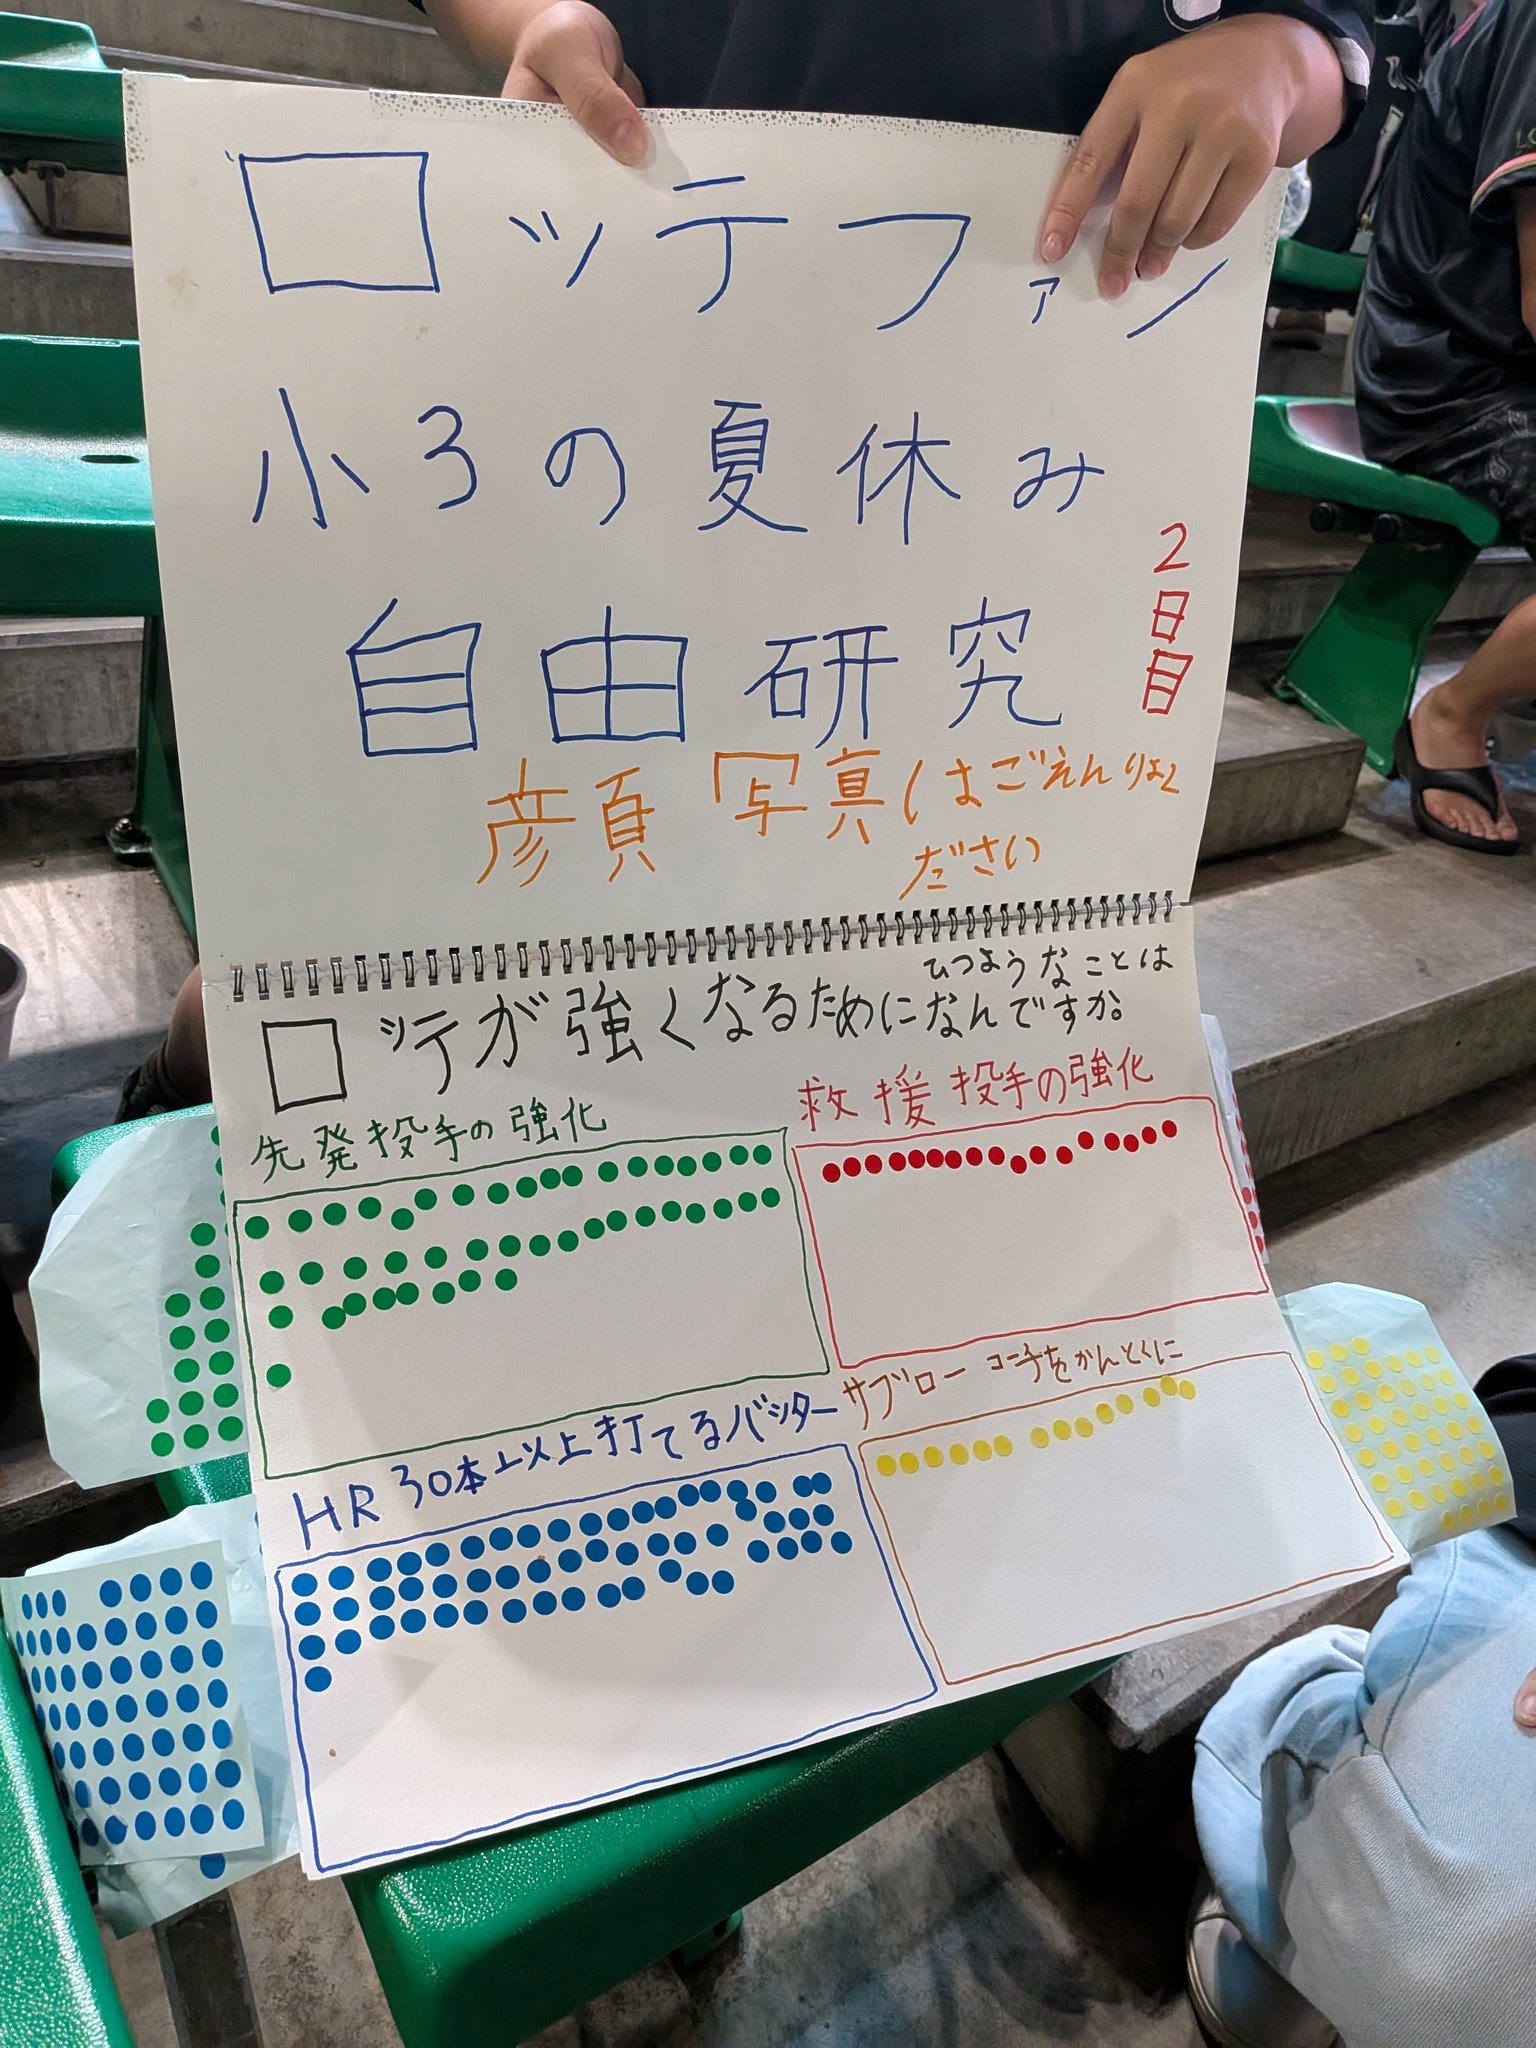 ロッテファン
小3の夏休み
自由研究
2日目
顔写真はごえんりょく
ださい
ロッテが強くなるためにひつようなことは
なんですか。
先発投手の強化
救援投手の強化
HR30本以上打てるバッター
サブローコーチをかんとくに